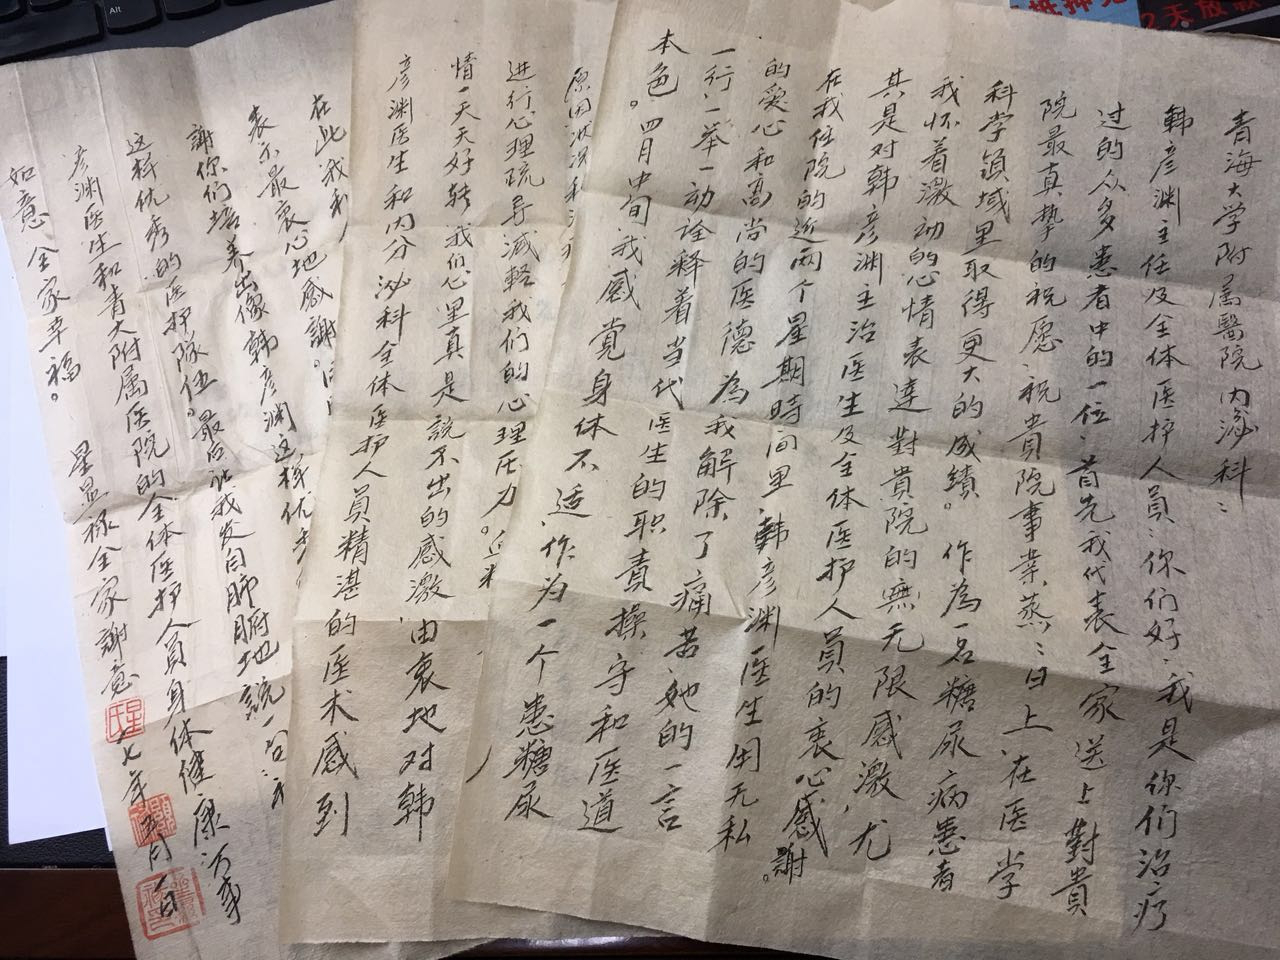 青海大学附属醫院内泌科：
韩彦渊主任及全体医护人员：你们好，我是你们治疗
过的众多患者中的一位，首先我代表全家送上對貴
院最真挚的祝愿，祝貴院事業蒸蒸日上，在医学
科学领域里取得更大的成绩。作為一名糖尿病患者
我怀着激动的心情表達對貴院的無无限感激，尤
其是对韩彦渊主治医生及全体医护人员的衷心感謝。
在我住院的近两个星期時间里，韩彦渊医生用无私
的爱心和高尚的医德為我解除了痛苦，她的一言
一行，一举一动诠释着当代医生的职责操守和医道
本色。四月中旬我感觉身体不适，作为一个患糖尿
原因状况和
进行心理疏导减轻我们的心理压力。近来
情一天天好转我的心里真是說不出的感激，由衷地对韩
彦渊医生和内分泌科全体医护人员精湛的医术感到
在此我和
表示最衷心地感謝。
謝你们培养出像韩彦渊这样优秀
这样优秀的医护队伍。最后让我发自肺腑地說一句：
彦渊医生和青大附属医院的全体医护人员身体健康万事
如意全家幸福。
星显禄全家謝意
七年五月一日
Alt